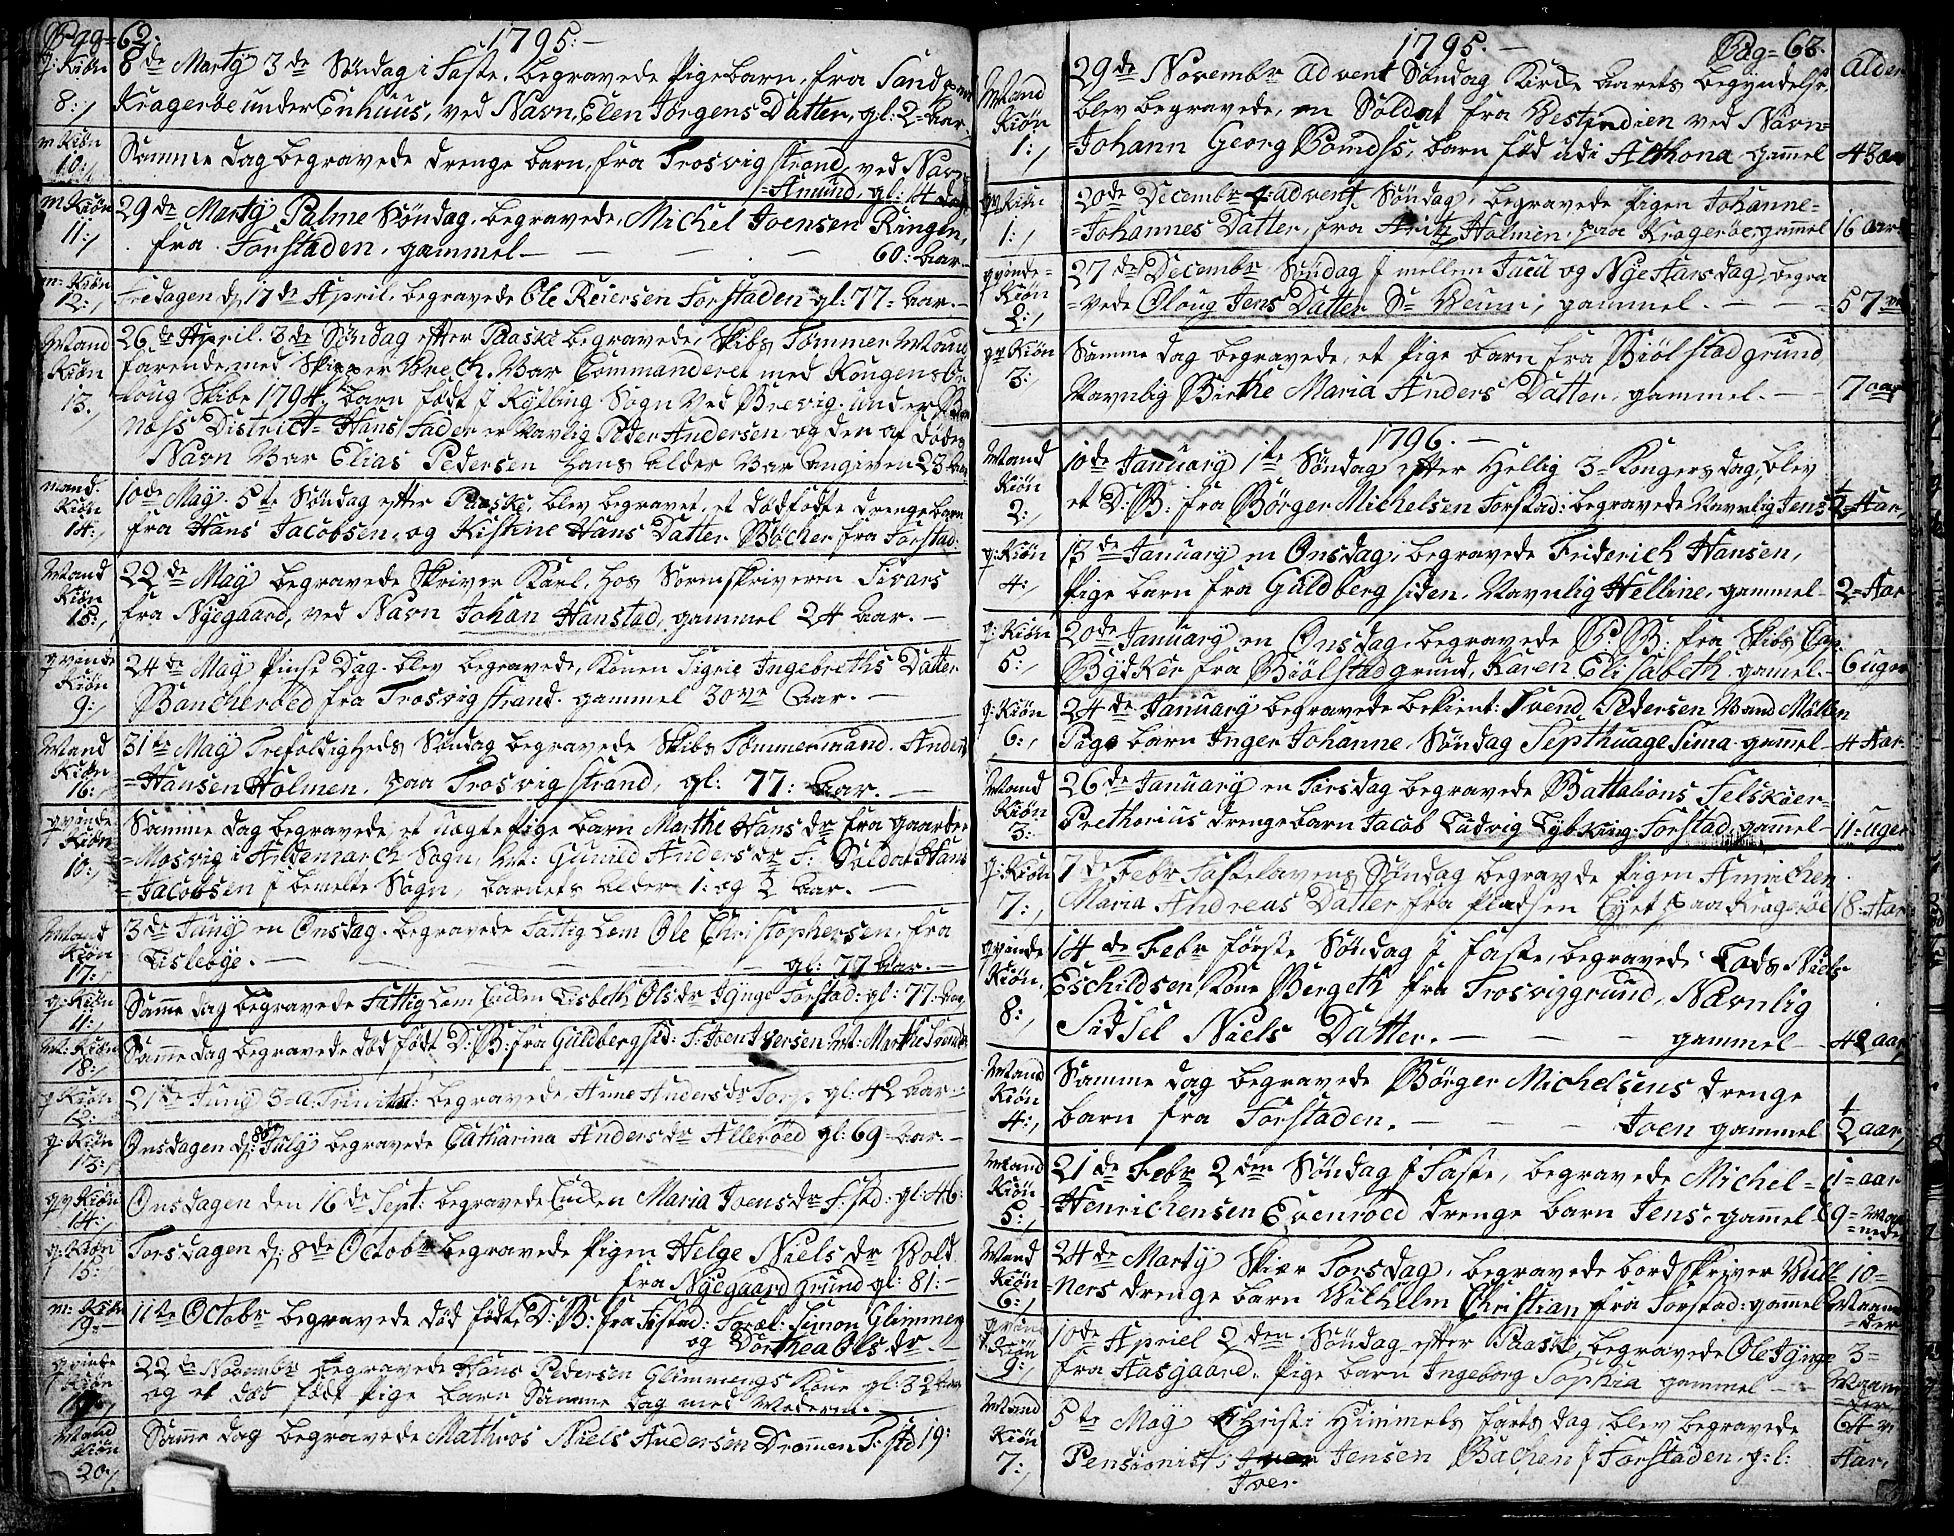 Pag=62.
1795.
q: Kiøn 8:/
8de Marty 3de Søndag i Faste, begravede Pigebarn, fra Sand
Kragerbe under Enhuus, ved Navn, Elen Jørgens Datter, gl: 2= Aar.
m Kiøn 10:/
Samme dag begravede drenge barn, fra Trosvig strand, ved Navn
=Amund, gl: 14 dage
m Kiøn 11:/
29de Marty Palme Søndag, begravede, Michel Joensen Ringen,
fra Forstaden, gammel — 60: Aar.
m: Kiøn 12:/
Fredagen d: 17de April begravede Ole Reiersen Forstaden gl: 77= Aar.
Mand Kiøn 13./
26de April. 3de Søndag efter Paaske begravede, Skibs Tømmer Mand
farende med Skipper Brech, Var Commanderet med Kongens
Skibe 1794, barn født i Kylling Sogn Ved Brevig. under
Næss District= Hans Fader er Navnlig Peder Andersen og den af døde
Navn Var Elias Pedersen Hans Alder Var Angiven 23 Aar
mand. Kiøn 14:/
10de May. 5te Søndag efter Paaske, blev begravet, et dødfødte drengebarn
fra Hans Jacobsen, og Kistine Hans Datter Bøcher fra Forstad:
Mand Kiøn 15:/
22de May begravede Skriver Karl. hos Sorenskriveren Sivars
fra Nyegaard, ved Navn Johan Hanstad, gammel 24 Aar. —
qvinde Kiøn 9:/
24de May Pinse Dag. blev begravede, Konen Sigrie Ingebreths Datter
Bancherøed fra Trosvig strand. gammel 30ve Aar. —
Mand Kiøn 16:/
31te May Trefoldigheds Søndag begravede Skibs Tømmermand. Anders
=Hansen Holmen, paa Trosvig strand, gl: 77: Aar. —
qvinde Kiøn 10:/
Samme dag begravede, et uægte Pige barn Marthe Hans dr fra gaarden
=Mosvig i Aremarch Sogn, M: Gunild Anders dr F: Soldat Hans
=Jacobsen i bemelte Sogn, barnets Alder 1: og ½ Aar. —
Mand Kiøn 17:/
3de Juny en Onsdag. begravede Fattig Lem Ole Christophersen, fra
Lisleøye. — gl: 77 Aar. —
q: Kiøn 11:/
Samme dag begravede Fattig Lem Encken Lisbeth Olsdr Iynge Forstad: gl: 77: Aar
M: Kiøn 18:/
Samme dag begravede død født D: B: fra Guldberg sid: F: Joen Iversen: M: Marthe
q: Kiøn 12:
21de Juny 3= a Trinitat: begravede, Anne Anders dr Torp. gl: 42 Aar.
q: Kiøn 13:/
Onsdagen d: 8de July begravede Catharina Anders dr Allerøed gl: 69 Aar. —
qv Kiøn 14:/
Onsdagen den 16de Sept: begravede Encken Maria Joens dr F: stad: gl: 46:
q: Kiøn 15:
Torsdagen d: 8de Octobr begravede Pigen Helge Niels dr Bold
fra Nyegaard grund gl: 81: —
m: Kiøn 19=
11te Octobr begravede død født, D: B: fra F: stad: Foræl: Simon Glimmen
og Dorthea Ols dr. —
qvinde Kiøn
22de Novembr begravede Hans Pedersen Glimmengs Kone gl: 32 Aar
og et død født Pige barn Samme dag med Moderen. —
Mand Kiøn 20./
Samme dag begravede Mathios Niels Andersen Drammen F: std 19:
1795. —
Pag= 63.
Alder
Mand Kiøn 1:/
29de Novembr Advent Søndag Kirke Aarets begyndelse
blev begravede, en Soldat fra Vestindien ved Navn=
=Johann Georg, barn fød udi Althona, gammel 43 Aar
qv Kiøn 1:/
20de Decembr 4: advent, Søndag, begravede Pigen Johanne=
=Johannes Datter, fra Holmen, paa Kragerbe, gammel 16 aar
qvinde= Kiøn 2:/
27de Decembr Søndag i mellem Juul og Nyt Aars dag, begra
=vede Oloug Jens Datter Sr Veum, gammel. — 57 ve
qv Kiøn 3:
Samme dag begravede, et Pige barn fra Biølstad grund,
Navnlig Birthe Maria Anders Datter, gammel. — 7 aar
1796. —
Mand Kiøn 2:/
10de January 1te Søndag efter Hellig 3= Kongers dag, blev
et D: B: fra Børger Michelsen Forstad: begravede Navnlig Jens ½= Aar,
q: Kiøn 4:/
13de January en Onsdag, begravede Friderich Hansen,
Pige barn fra Guldberg siden, Navnlig Helline, gammel — 2= Aar
q: Kiøn 5:/
20de January en Onsdag, begravede P: B: fra Skibs Cap:
Bydker fra Biølstad grund, Karen Elisabeth gamel — 6 uger
q: Kiøn 6:/
24de January begravede bekient: Svend Pedersen Vand Møllen
Pige barn Inger Johanne, Søndag Septhuagesima gammel — 4 Aar
Mand Kiøn 3:
26de January en Torsdag begravede Battalions Felskiær=
Prethorius drengebarn Jacob Ludvig Forstad, gammel — 11= Uger
q: Kiøn 7:/
7de Febr Fastelavens Søndag begravde Pigen Annichen
Maria Andreas Datter fra Pladsen Eyet, paa Kragerøe 18= Aar
qvinde Kiøn, 8:/
14de Febr første Søndag i Faste, begravede Lods Niels
Eschildsen, Kone Bergeth fra Trosviggrund, Nævnlig
Sidsel Niels Datter. — gammel — 42 aar
Mand Kiøn 4:/
Samme dag begravede Børger Michelsens drenge
barn fra Forstaden. — Joen gammel ½ aar
Mand Kiøn 5:/
21de Febr 2den Søndag i Faste, begravede Michel= 1= aar
Henrichensen Evenrød drenge barn Jens, gammel & 9= Maa=
=neder
Mand Kiøn 6:/
24de Marty Skiær Torsdag, begravede bordskriver Bull= 10=
ners drenge barn Wilhelm Christian fra Forstad: gammel Maane=
=der
qvinde Kiøn 9:/
10de Apriel 2den Søndag efter Paaske, begravede Ole Iynge 3=
fra Aasgaard, Pige barn Ingeborg Sophia gammel — Maane
der
Mand Kiøn 7:/
5te May Christi Himmels farts dag, blev begravede 64 ve
Pensionist Jensen Bachen i Forstaden, g:l: Aar,
Iver